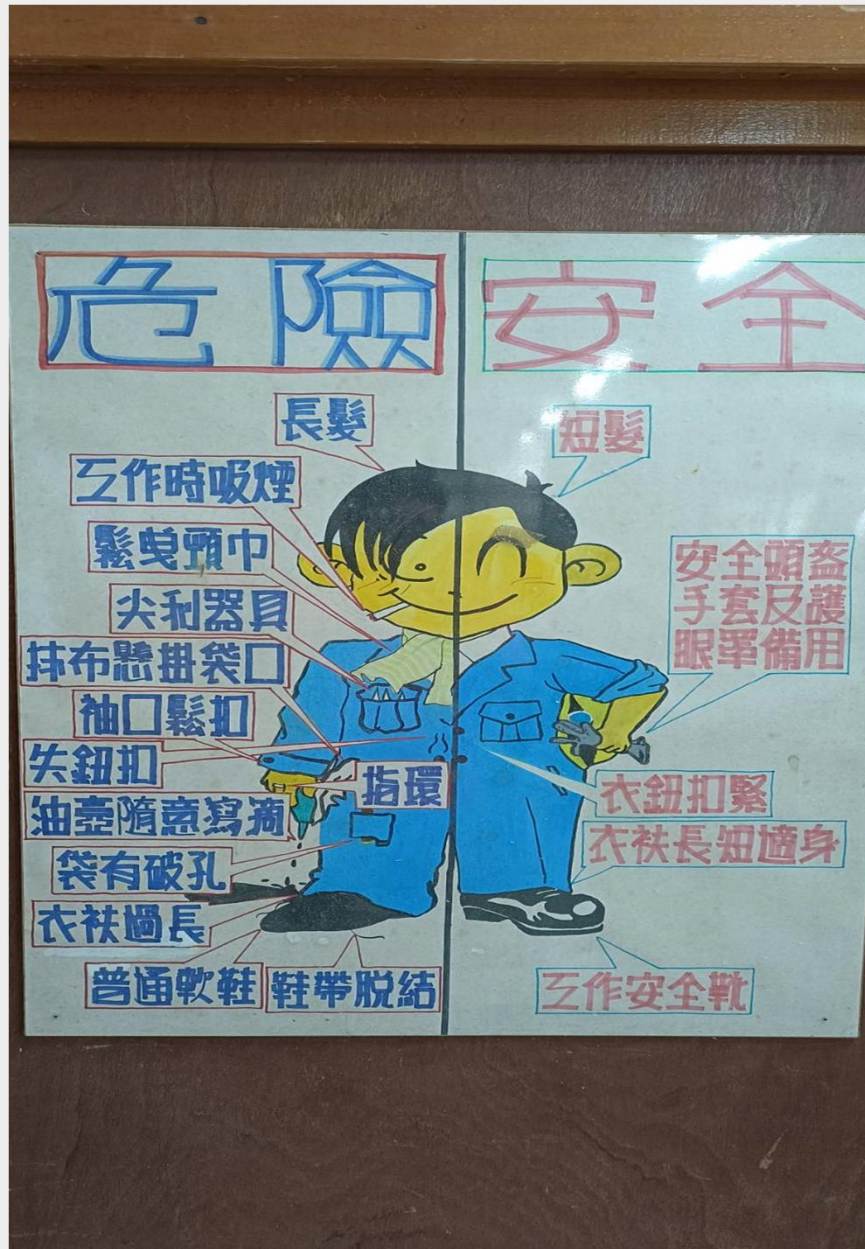 危險
安全
長髮
工作時吸煙
鬆曳頸巾
尖利器具
抹布懸掛袋口
袖口鬆扣
失鈕扣
指環
油壺隨意瀉滴
袋有破孔
衣袂過長
普通軟鞋
鞋帶脫結
短髮
安全頭盔
手套及護
眼罩備用
衣鈕扣緊
衣袂長短適身
工作安全靴